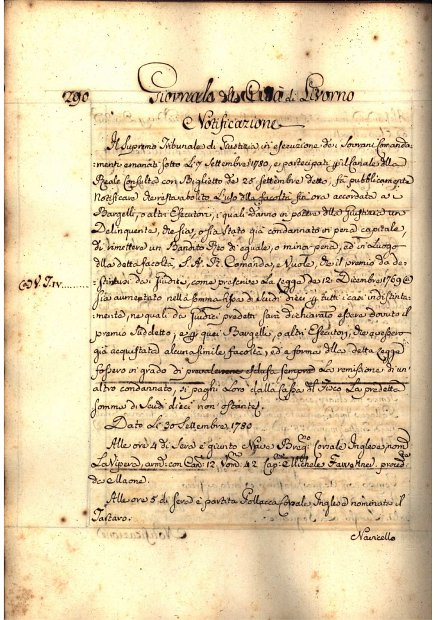 290 Giornale della Città di Livorno
Notificazione
Il Supremo Tribunale di Giustizia in esecuzione de i Sovrani Comanda
menti emanati sotto Lì 9 Settembre 1780, e partecipati p il canale della
Reale Consulta con Biglietto de 25 settembre detto, fà pubblicamente
Notificare che resta abolito L'uso della facoltà fin ora accordata a i
Bargelli, o altri Esecutori, i quali danno in potere della Giustizia un
Delinquente, che sia, o sia stato già condannato in pena capitale,
di rimettere un Bandito Reo di eguale, o minor pena, ed in Luogo
della detta facoltà, S. A. R. Comanda, e Vuole, che il premio da de
stinarsi da i Giudici, come prescrive La Legge de 12 Dicembre 1769
sia aumentato nella somma fissa di scudi dieci p tutti i casi indistinta
mente, ne quali da Giudici predetti sarà dichiarato essere dovuto il
premio suddetto, e p quei Bargelli, o altri Esecutori, che avessero
già acquistata alcuna simile facoltà, ed a forma della detta Legge
fossero in grado di La remissione di un
altro condannato, si paghi Loro dalla Cassa del Fisco La predetta
somma di Scudi dieci non ostante.
Dato Lì 30 Settembre 1780
Alle ore 4 di Sera è giunto Nave Brig.no Corsale Inglese nom.
La Vipera, arm. con Can. 12 Nom. 42 Cap. Michele proced
da Maone.
Alle ore 5 di sera è partita Pollacca Corsale Inglese nominata il
Tartaro.
Navicello